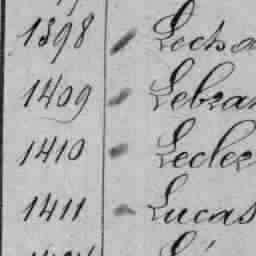 1398 Lecha
1409 Lebran
1410 Lecler
1411 Lucas